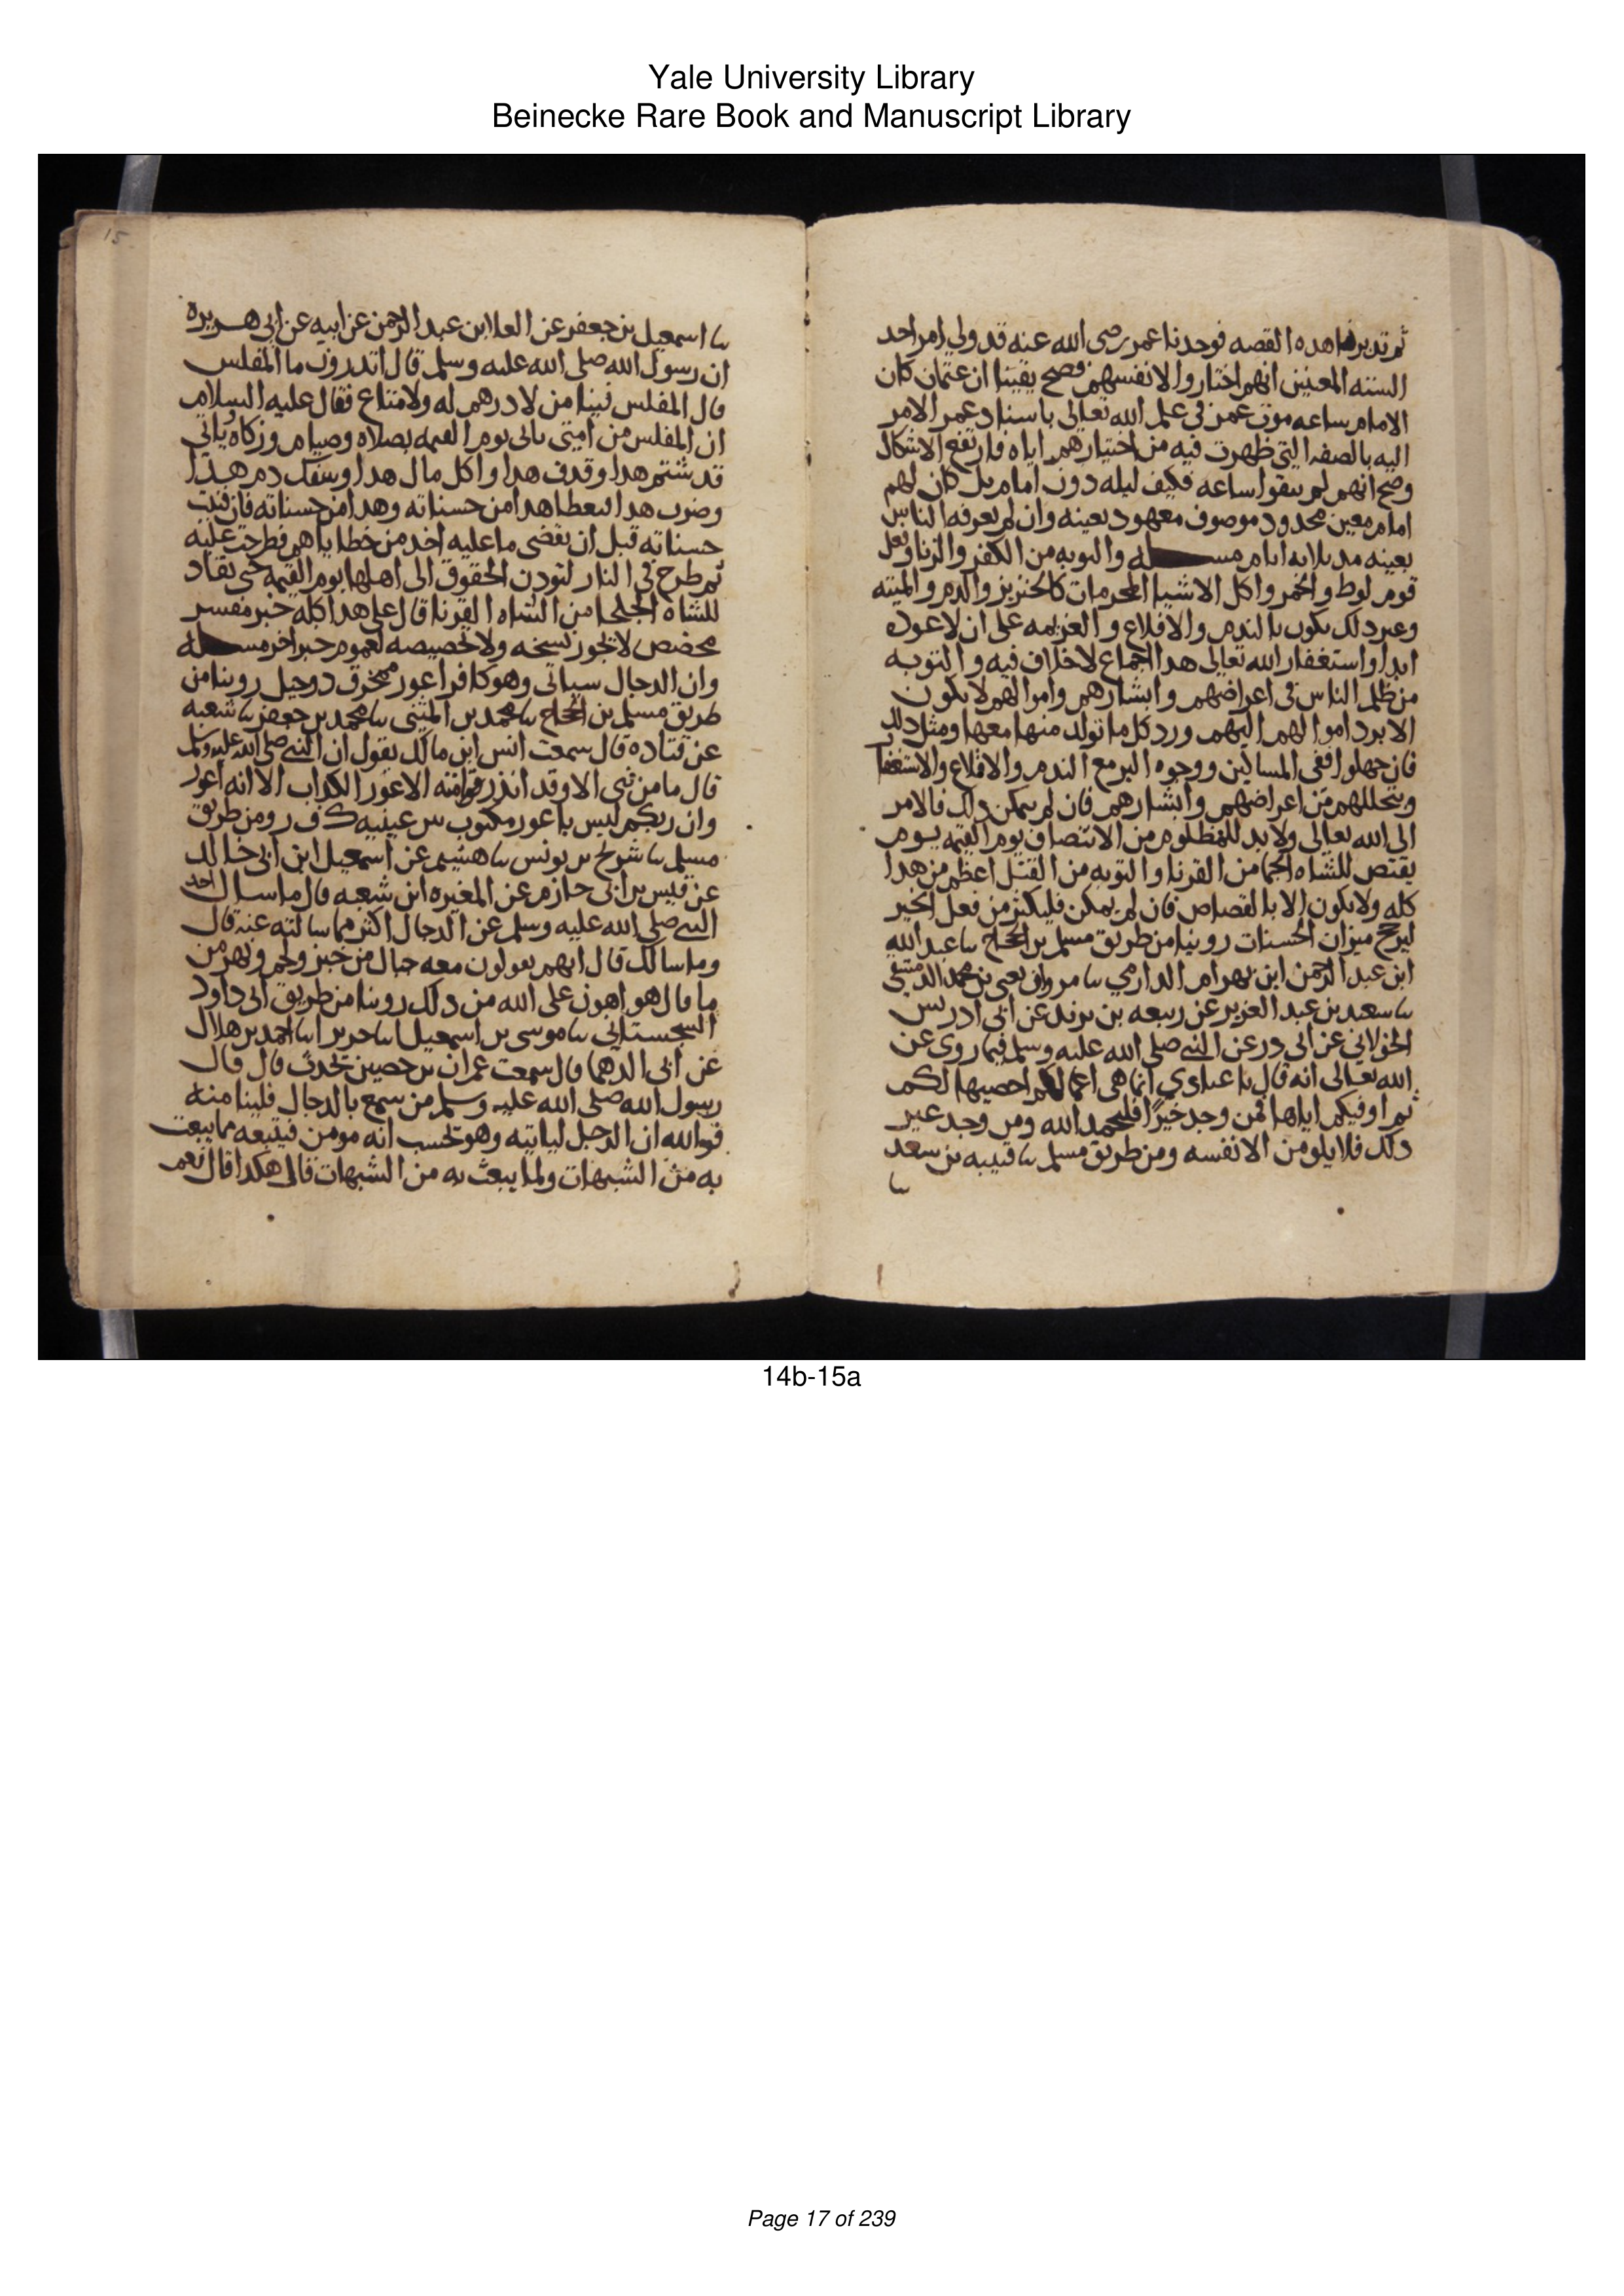 Yale University Library
Beinecke Rare Book and Manuscript Library
ثم تدبرنا هده القصه فوجدنا عمر رضى الله عنه قد ولي امر احد
السته المعنين انهم اختاروا لانفسهم فصح يقينا ان عثمان كان
الامام ساعه موت عمر فى علم الله تعالى باسناد عمر الامر
اليه بالصفه التي ظهرت فيه من اختيارهم اياه فارتفع الاشكال
وصح انهم لم يبقوا ساعه فكيف ليله دون امام بل كان لهم
امام معين محدود موصوف معهود بعينه وان لم يعرفه الناس
بعينه مده ثلاثه ايام مسله والتوبه من الكفر والزنا وفعل
قوم لوط والخمر واكل الاشيا المحرمات كالخنزير والدم والميته
وغير دلك يكون بالندم والاقلاع والعزيمه على ان لا عوده
ابدا واستغفار الله تعالى هدا اجماع لا خلاف فيه والتوبه
من ظلم الناس فى اعراضهم وابشارهم واموالهم لا يكون
الا برد اموالهم اليهم ورد كل ما تولد منها معها ومثل دلك
فان جهلوا ففى المساكين ووجوه البر مع الندم والاقلاع والاستغفار
وتحللهم من اعراضهم وابشارهم فان لم يمكن دلك فالامر
الى الله تعالى ولا بد للمظلوم من الانتصاف يوم القيمه يوم
يقتص للشاه الجما من القرنا والتوبه من القتل اعظم من هدا
كله ولا يكون الا بالقصاص فان لم يمكن فليكثر من فعل الخير
ليرجح ميزان الحسنات روينا من طريق مسلم بن الحجاج سا عبد الله
ابن عبد الرحمن ابن بهرام الدارمي سا مروان يعنى بن محمد الدمشقى
سا سعيد بن عبد العزيز عن ربيعه بن يزيد عن ابى ادريس
الخولاني عن ابى در عن النبى صلى الله عليه وسلم فيما روى عن
الله تعالى انه قال يا عبادي انما هى اعمالكم احصيها لكم
ثم اوفيكم اياها فمن وجد خيرًا فليحمد الله ومن وجد غير
دلك فلا يلومن الا نفسه ومن طريق مسلم سا قتيبه بن سعد
سا
15
سا اسمعيل بن جعفر عن العلا بن عبد الرحمن عن ابيه عن ابى هريره
ان رسول الله صلى الله عليه وسلم قال اتدرون ما المفلس
قال المفلس فينا من لا درهم له ولا متاع فقال عليه السلام
ان المفلس من امتى ياتى يوم القيمه بصلاه وصيام وزكاه ياتي
قد شتم هدا وقدف هدا واكل مال هدا وسفك دم هدا
وضرب هدا فيعطا هدا من حسناته وهدا من حسناته فان فنيت
حسناته قبل ان يقضى ما عليه اخد من خطاياهم فطرحت عليه
ثم طرح فى النار لتودن الحقوق الى اهلها يوم القيمه حتى يقاد
للشاه الجلحا من الشاه القرنا قال على هدا كله خبر مفسر
مخصص لا يجوز نسخه ولا تخصيصه لعموم خبر اخر مسله
وان الدجال سياتى وهو كافر اعور ممخرق دو حيل روينا من
طريق مسلم بن الحجاج سا محمد بن المثنى سا محمد بن جعفر سا شعبه
عن قتاده قال سمعت انس ابن مالك يقول ان النبى صلى الله عليه وسلم
قال ما من نبى الا وقد اندر امته الاعور الكداب الا انه اعور
وان ربكم ليس باعور مكتوب بين عينيه ك ف ر ومن طريق
مسلم سا شريح بن يونس سا هشيم عن اسمعيل ابن ابى خالد
عن قيس بن ابى حازم عن المغيره ابن شعبه قال ما سال احد
النبى صلى الله عليه وسلم عن الدجال اكثر مما سالته عنه قال
وما سالك قال انهم يقولون معه جبال من خبز ولحم ونهر من
ما قال هو اهون على الله من دلك روينا من طريق ابى داود
السجستاني سا موسى بن اسمعيل سا جرير سا حميد بن هلال
عن ابى الدهما قال سمعت عمران بن حصين يحدث قال قال
رسول الله صلى الله عليه وسلم من سمع بالدجال فلينا منه
فوالله ان الرجل لياتيه وهو يحسب انه مومن فيتبعه مما يبعث
به من الشبهات ولما يبعث به من الشبهات قال هكدا قال نعم
14b-15a
Page 17 of 239